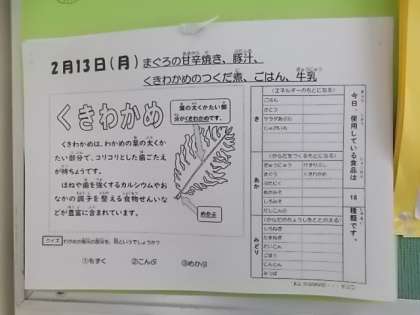 2月13日(月) まぐろの甘辛焼き、豚汁、
くきわかめのつくだ煮、ごはん、牛乳
くきわかめ
くきわかめは、わかめの葉の太くか
たい部分で、コリコリとした歯ごたえ
が特ちょうです。
ほねや歯を強くするカルシウムやお
なかの調子を整える食物せんいな
どが豊富に含まれています。
葉の太くかたい部
分がくきわかめです。
めかぶ
クイズ
①もずく ②こんぶ ③めかぶ
今日、使用している食品は
18
種類です。
き
(エネルギーのもとになる)
ごはん
さとう
サラダあぶら
じゃがいも
あか
(からだをつくるもとになる)
ぎゅうにゅう
くきわかめ
みどり
(からだのちょうしをととのえる)
しょうが
だいこん
ごぼう
にんじん